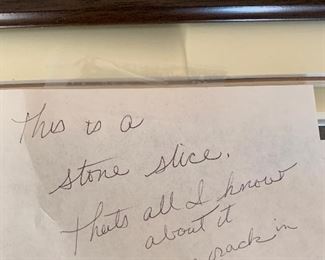 This is a
stone slice.
Thats all I know
about it
crack in